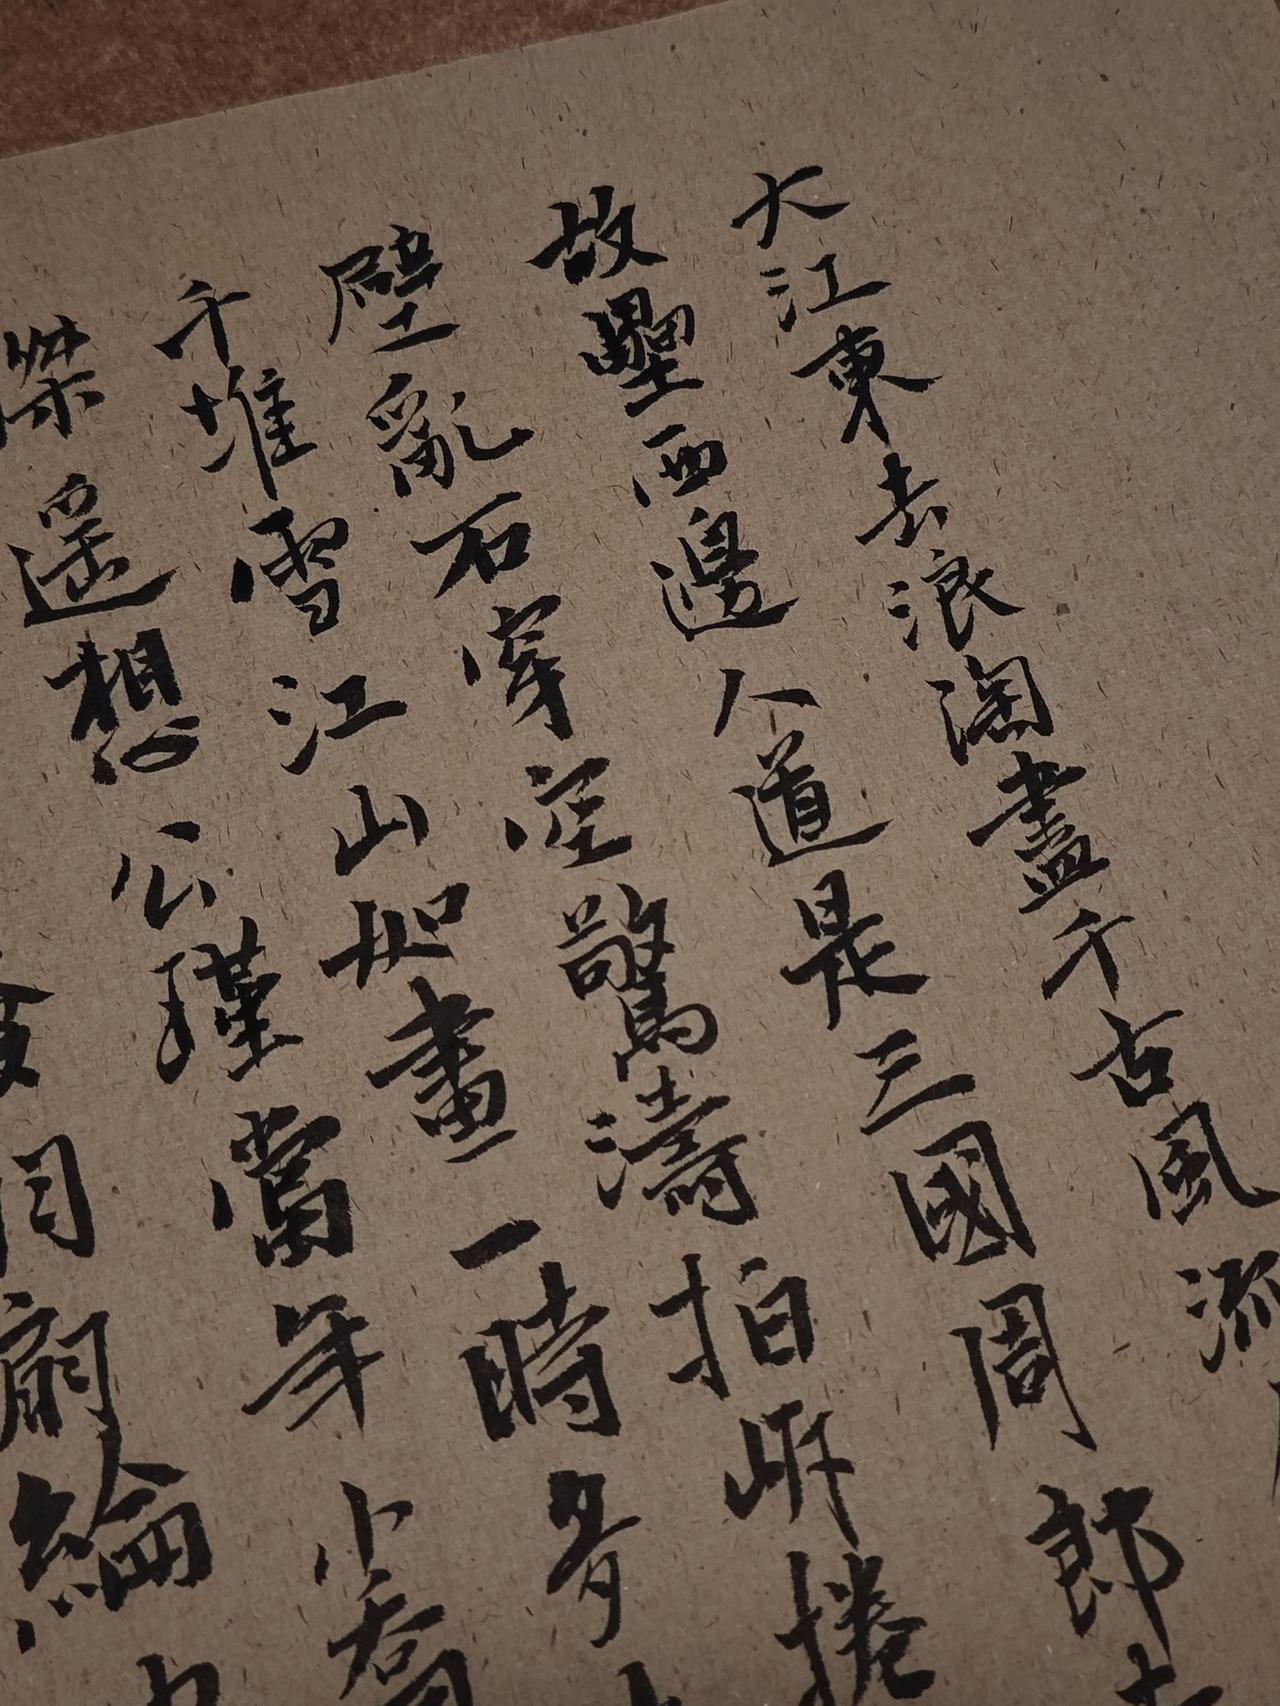 大江東去浪淘盡千古風流
故壘西邊人道是三國周郎赤
壁亂石穿空驚濤拍岸捲
千堆雪江山如畫一時多
傑遥想公瑾當年小喬
羽扇綸巾